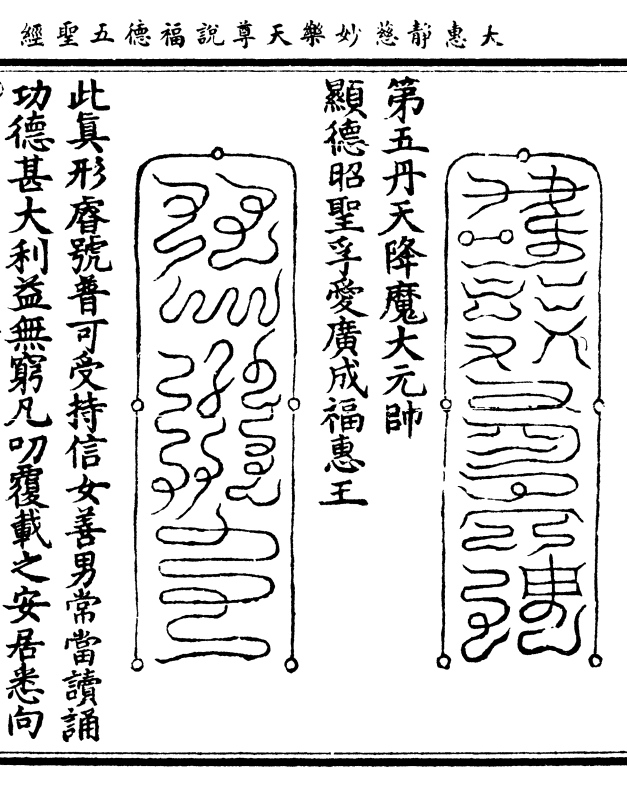 大惠靜慈妙樂天尊說福德五聖經
第五丹天降魔大元帥
顯德昭聖孚愛廣成福惠王
此真形睿號普可受持信女善男常當讀誦
功德甚大利益無窮凡叨覆載之安居悉向